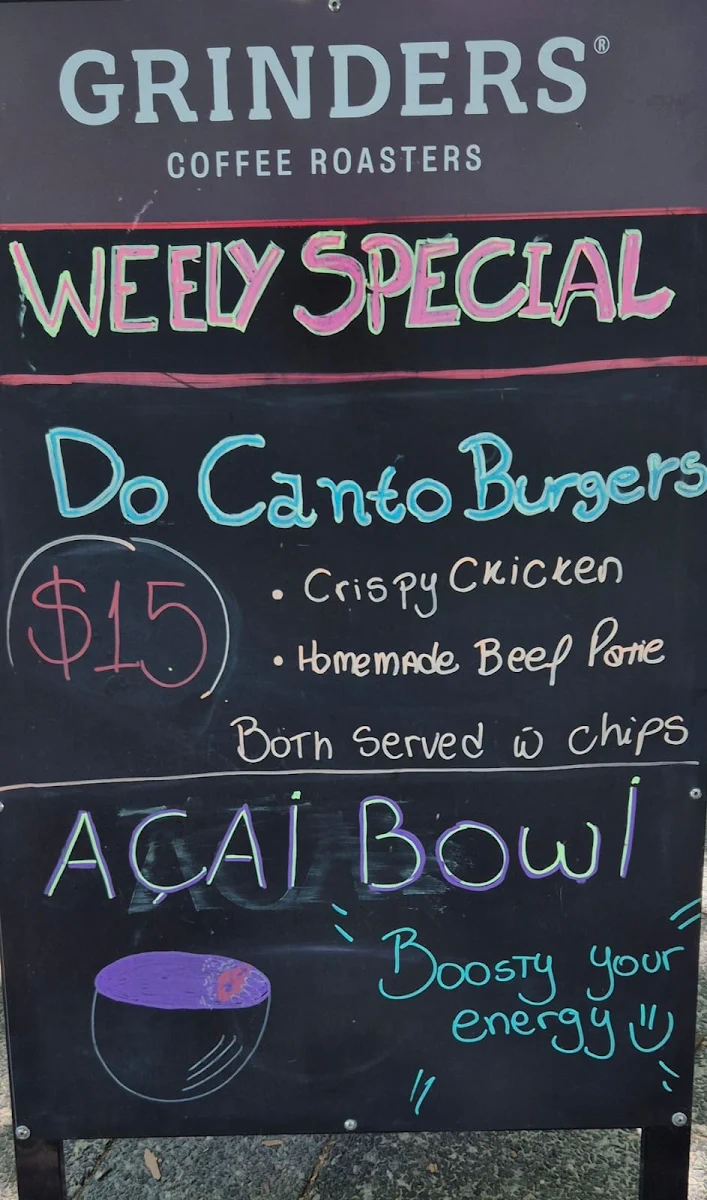 GRINDERS®
COFFEE ROASTERS
WEELY SPECIAL
Do Canto Burgers
$15
• Crispy Chicken
• Homemade Beef Patie
Both Served w chips
AÇAi Bowi
Boosty your
energy